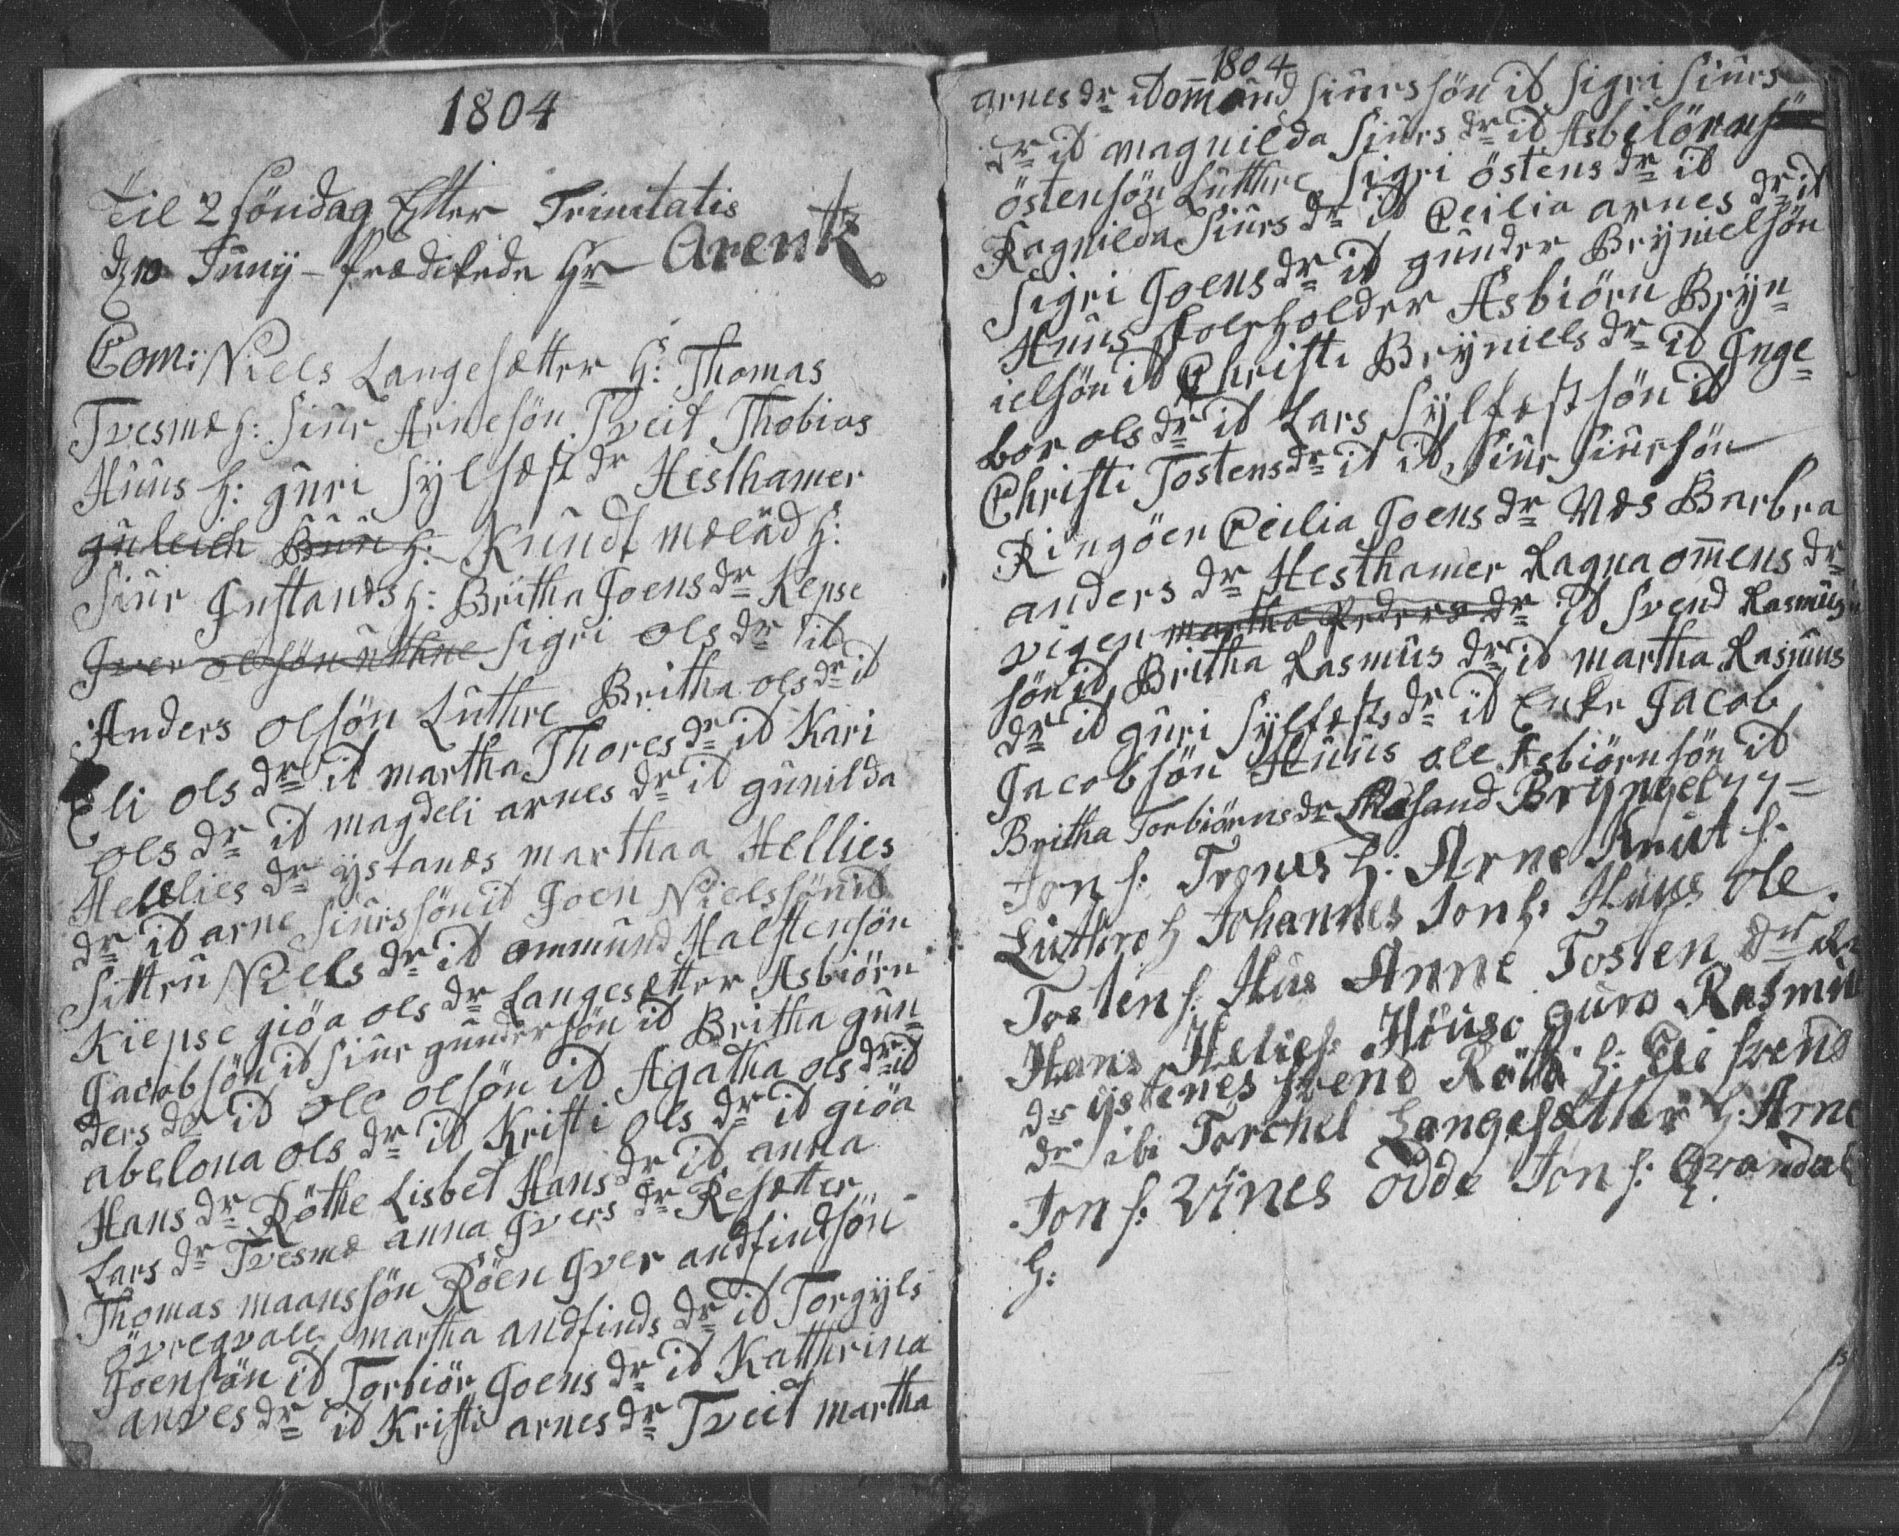 1804
Til 2 Söndag Efter Trinitatis
d 10 Junij - Prædikede Hr Arentz
Com: Niels Langesætter H: Thomas
Tvesme H: Siur Arnesön Tveit Thobias
Huus H: guri Sylfæst dr Hesthamer
guleich Buu H: Kundt mæland H:
Siur Instands H: Britha Joens dr Kepse
Iver olsön uthne Sigri ols dr it
Anders olsön Luthre Britha ols dr it
Eli ols dr it martha Thores dr it Kari
ols dr it magdeli arnes dr it gunilda
Hellies dr ystanæs marthaa Hellies
dr it arne Siurssön it Joen Nielssön it
Sitten Niels dr it ommund Halstensön
Kiepse giöa ols dr Langesætter Asbiörn
Jacobsön it Siur gundersön it Britha gun-
ders dr it ole olsön it Agatha ols dr it
abelona ols dr it Kristi ols dr it giöa
Hans dr Röthe Lisbet Hans dr it anna
Lars dr Tvesme anna Ivers dr Resætter
Thomas maanssön Röen Iver andfindsön
övreqvale martha andfinds dr it Torgyls
Joensön it Torbiör Joens dr it Kathrina
anves dr it Kristi arnes dr Tveit martha
1804
arnes dr it ommund Siurssön it Sigri Siurs
dr it magnilda Siurs dr it Asbiörn
östensön Luthre Sigri östens dr it
Ragnilda Siurs dr it Ceilia arnes dr it
Sigri Joens dr it gunder Brynielsön
Huus Skoleholder Asbiörn Bryn-
ielsön it Christi Bryniels dr it Inge-
bor ols dr it Lars Sylfæstsön it
Christi Tostens dr it it Siur Siursön
Ringöen Ceilia Joens dr Næs Barbra
anders dr Hesthamer Ragna ommens dr
vigen martha Peders dr it Svend Rasmus
sön it Britha Rasmus dr it martha Rasmus
dr it guri Sylfæsts dr it Enke Jacob
Jacobsön Huus ole Asbiörnsön it
Britha Torbiörns dr Bryngel
Jon s: Trones h: Arne Knut s:
Luthro h Johannes Jon s: Huus Ole
Tosten s: Hus Anne Tosten dr
Hans Helies Houso guro Rasmu
dr ystenes Svend Röth h: Eli Svend
dr ibi Torchel Langesætter h: Arne
Jon s: Vines Odde Jon s: Qvandal
h: